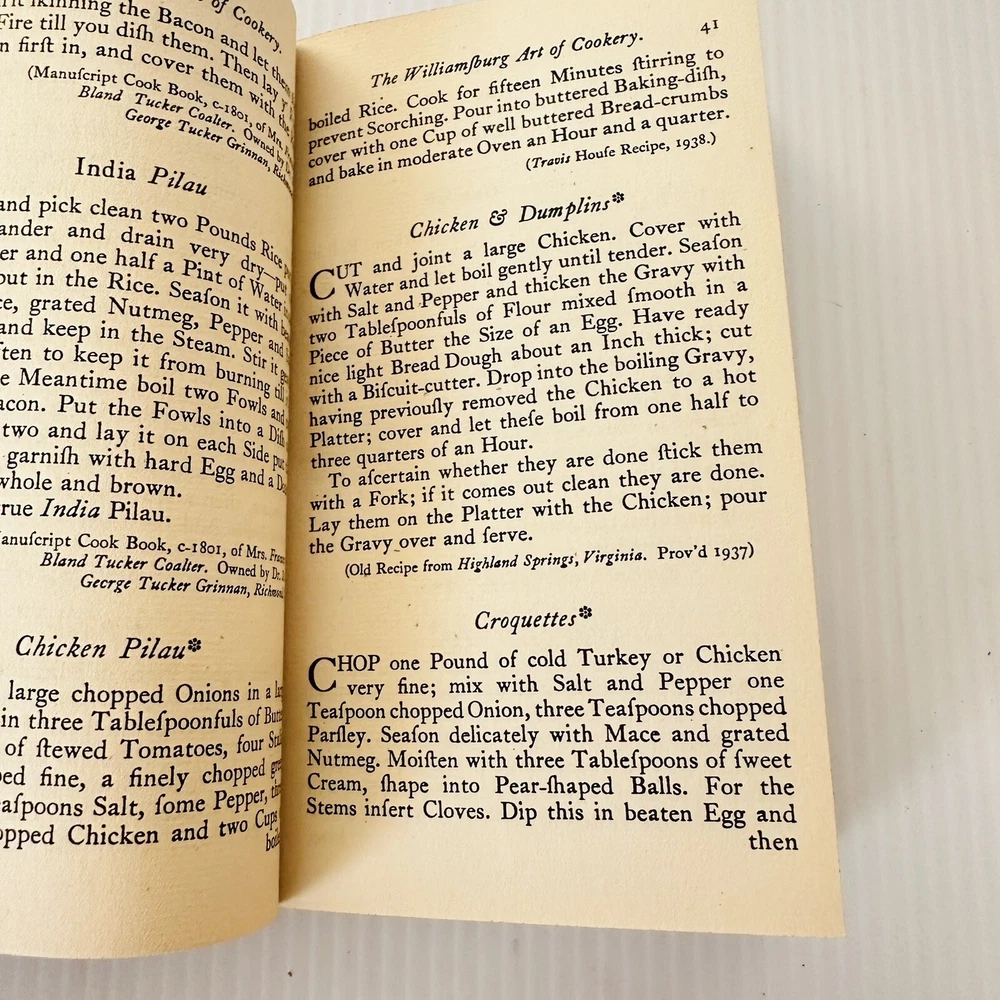 of Cookery.
skinning the Bacon and let these
Fire till you diſh them. Then lay
n firſt in, and cover them with the
(Manuſcript Cook Book, c-1801, of Mrs.
Bland Tucker Coalter. Owned by
George Tucker Grinnan,
India Pilau
and pick clean two Pounds Rice
ander and drain very dry—put
er and one half a Pint of Water
put in the Rice. Seaſon it with
ce, grated Nutmeg, Pepper and
and keep in the Steam. Stir it
ften to keep it from burning till
e Meantime boil two Fowls and
acon. Put the Fowls into a Diſh
two and lay it on each Side put
garniſh with hard Egg and a
whole and brown.
true India Pilau.
Manuſcript Cook Book, c-1801, of Mrs.
Bland Tucker Coalter. Owned by Dr.
George Tucker Grinnan,
Chicken Pilau*
large chopped Onions in a
in three Tableſpoonfuls of
of ſtewed Tomatoes, four
ped fine, a finely chopped
eaſpoons Salt, ſome Pepper,
opped Chicken and two Cups
41
The Williamſburg Art of Cookery.
boiled Rice. Cook for fifteen Minutes ſtirring to
prevent Scorching. Pour into buttered Baking-diſh,
cover with one Cup of well buttered Bread-crumbs
and bake in moderate Oven an Hour and a quarter.
(Travis Houſe Recipe, 1938.)
Chicken & Dumplins*
CUT and joint a large Chicken. Cover with
Water and let boil gently until tender. Seaſon
with Salt and Pepper and thicken the Gravy with
two Tableſpoonfuls of Flour mixed ſmooth in a
Piece of Butter the Size of an Egg. Have ready
nice light Bread Dough about an Inch thick; cut
with a Biſcuit-cutter. Drop into the boiling Gravy,
having previouſly removed the Chicken to a hot
Platter; cover and let theſe boil from one half to
three quarters of an Hour.
To aſcertain whether they are done ſtick them
with a Fork; if it comes out clean they are done.
Lay them on the Platter with the Chicken; pour
the Gravy over and ſerve.
(Old Recipe from Highland Springs, Virginia. Prov'd 1937)
Croquettes*
CHOP one Pound of cold Turkey or Chicken
very fine; mix with Salt and Pepper one
Teaſpoon chopped Onion, three Teaſpoons chopped
Parſley. Seaſon delicately with Mace and grated
Nutmeg. Moiſten with three Tableſpoons of ſweet
Cream, ſhape into Pear-ſhaped Balls. For the
Stems inſert Cloves. Dip this in beaten Egg and
then